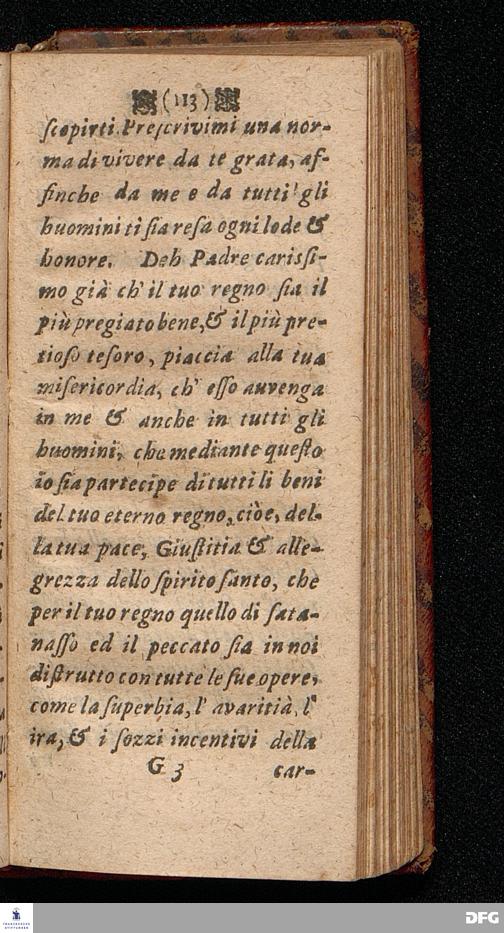 (113)
ſcopirti. Preſcrivimi una nor-
ma di vivere da te grata, af-
finche da me e da tutti gli
huomini ti ſia reſa ogni lode &
honore. Deh Padre carisſi-
mo già ch' il tuo regno ſia il
più pregiato bene, & il più pre-
tioſo teſoro, piaccia alla tua
miſericordia, ch' eſſo auvenga
in me & anche in tutti gli
huomini, che mediante queſto
io ſia partecipe di tutti li beni
del tuo eterno regno, ciòe, del-
la tua pace, Giuſtitia & alle-
grezza dello ſpirito ſanto, che
per il tuo regno quello di ſata-
naſſo ed il peccato ſia in noi
diſtrutto con tutte le ſue opere,
come la ſuperbia, l' avaritià, l'
ira, & i ſozzi incentivi della
G 3 car-
FRANCKESCHE STIFTUNGEN
DFG